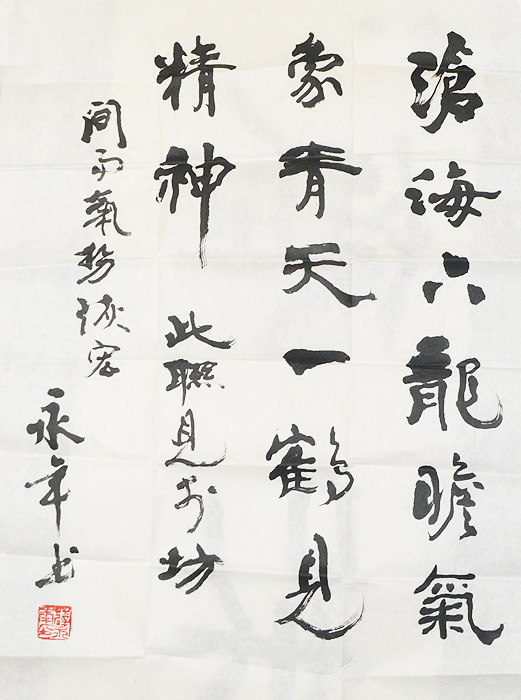 滄海六龍瞻氣
象青天一鶴見
精神 此聯見於坊
間而氣勢恢宏
永年书